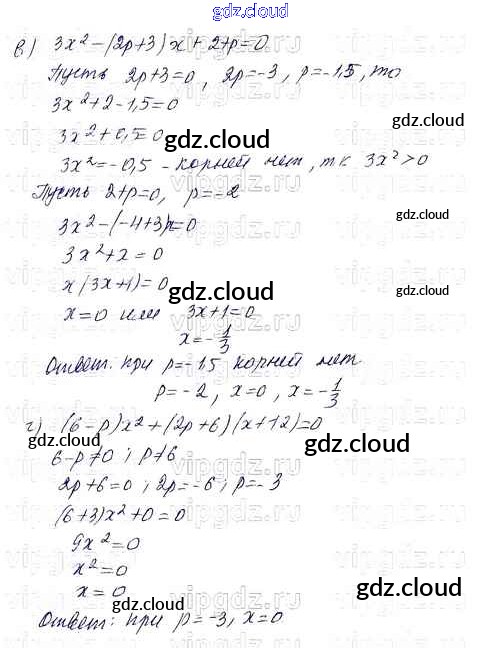 gdz.cloud
в) 3x² - (2p+3)x + 2+p=0
gdz.cloud
Пусть 2p+3=0, 2p=-3, p=-1,5, то
3x²+2-1,5=0
3x²+0,5=0
gdz.cloud
3x²=-0,5 - корней нет, т.к 3x²>0
Пусть 2+p=0, p=-2
gdz.cloud
3x²-(-4+3)x=0
3x²+x=0
x(3x+1)=0
gdz.cloud
gdz.cloud
x=0 или 3x+1=0
x=-1/3
Ответ: при p=-1,5 корней нет
p=-2, x=0, x=-1/3
г) (6-p)x²+(2p+6)(x+12)=0
gdz.cloud
gdz.cloud
6-p≠0; p≠6
2p+6=0; 2p=-6; p=-3
(6+3)x²+0=0
9x²=0
x²=0
x=0
gdz.cloud
gdz.cloud
Ответ: при p=-3, x=0